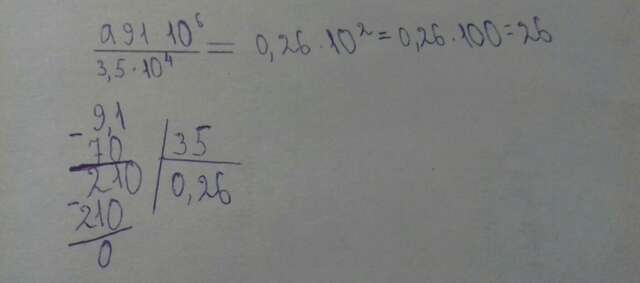 0,91 10⁶
3,5·10⁴ = 0,26·10² = 0,26·100 = 26
- 9,1
70 35
210 0,26
- 210
0